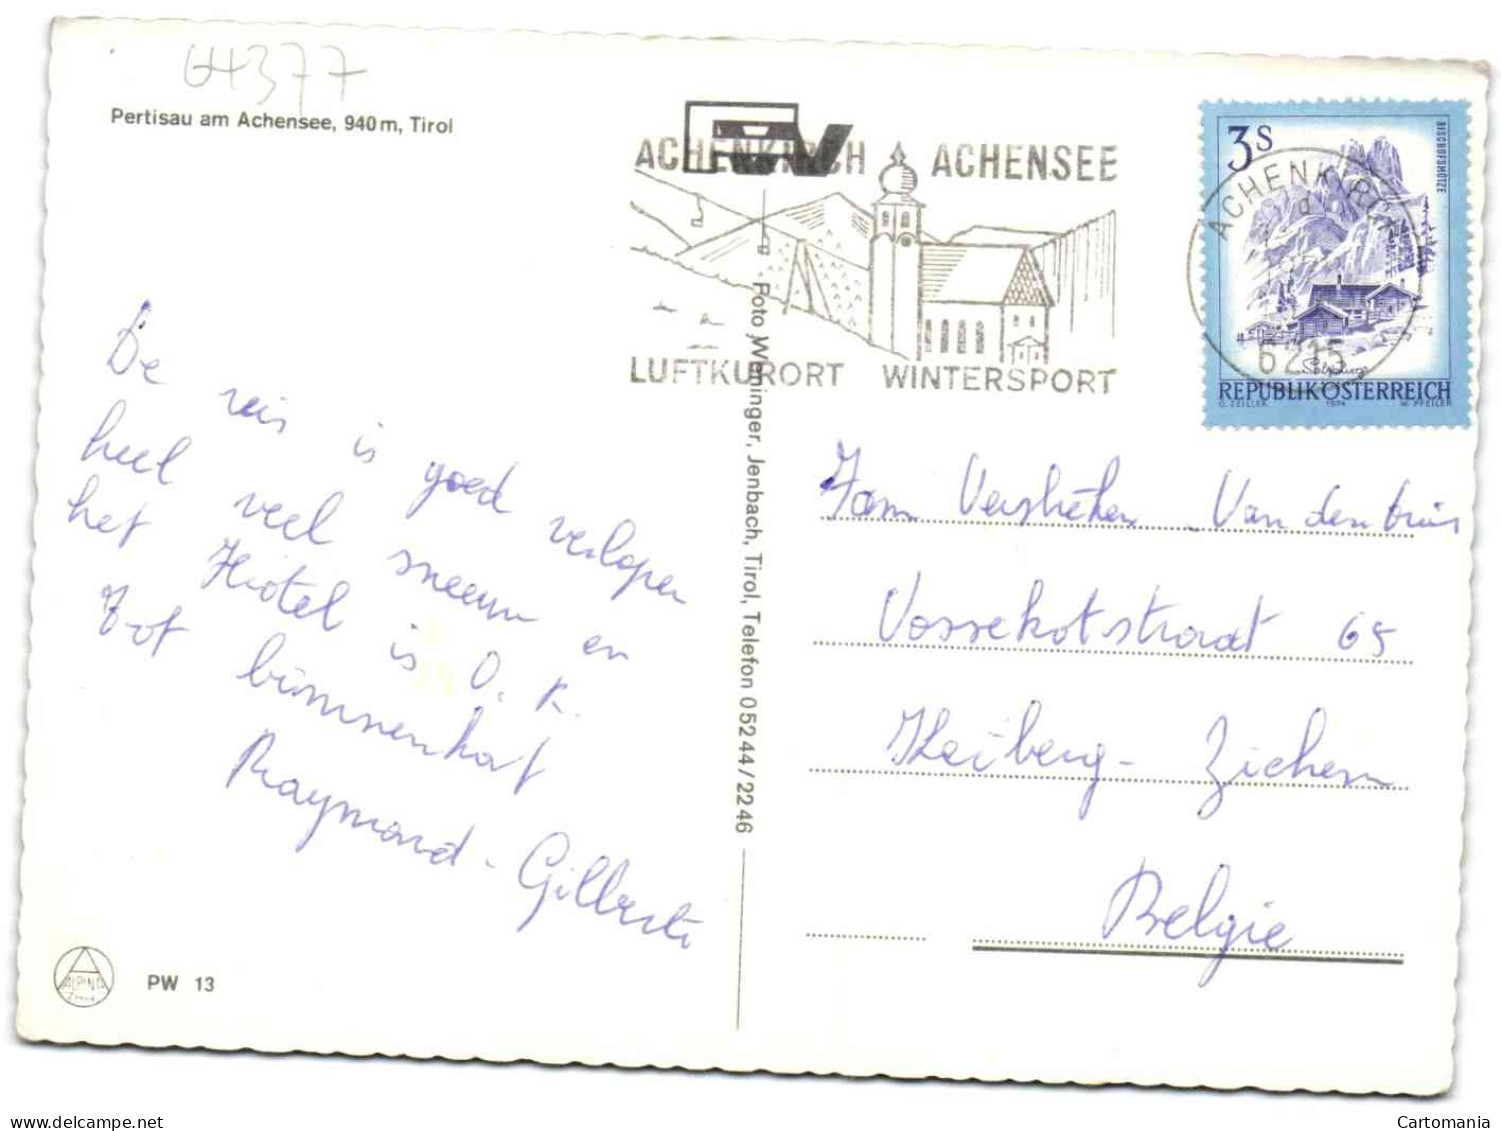 64377
Pertisau am Achensee, 940 m, Tirol
ACHENKIRCH ACHENSEE
LUFTKURORT WINTERSPORT
3S
BISCHOFSMÜTZE
ACHENKIRCH
6215
Salzburg
REPUBLIK ÖSTERREICH
O. ZEILLER 1974 W. PFEILER
De reis is goed verlopen
heel veel sneeuw en
het Hotel is O.K.
Tot binnenkort
Raymond - Gilberte
Foto Weninger, Jenbach, Tirol, Telefon 05244/2246
Fam Van den
Vossekotstraat 65
Keiberg - Zichem
Belgie
ALPINA
PW 13
delcampe.net
Cartomania